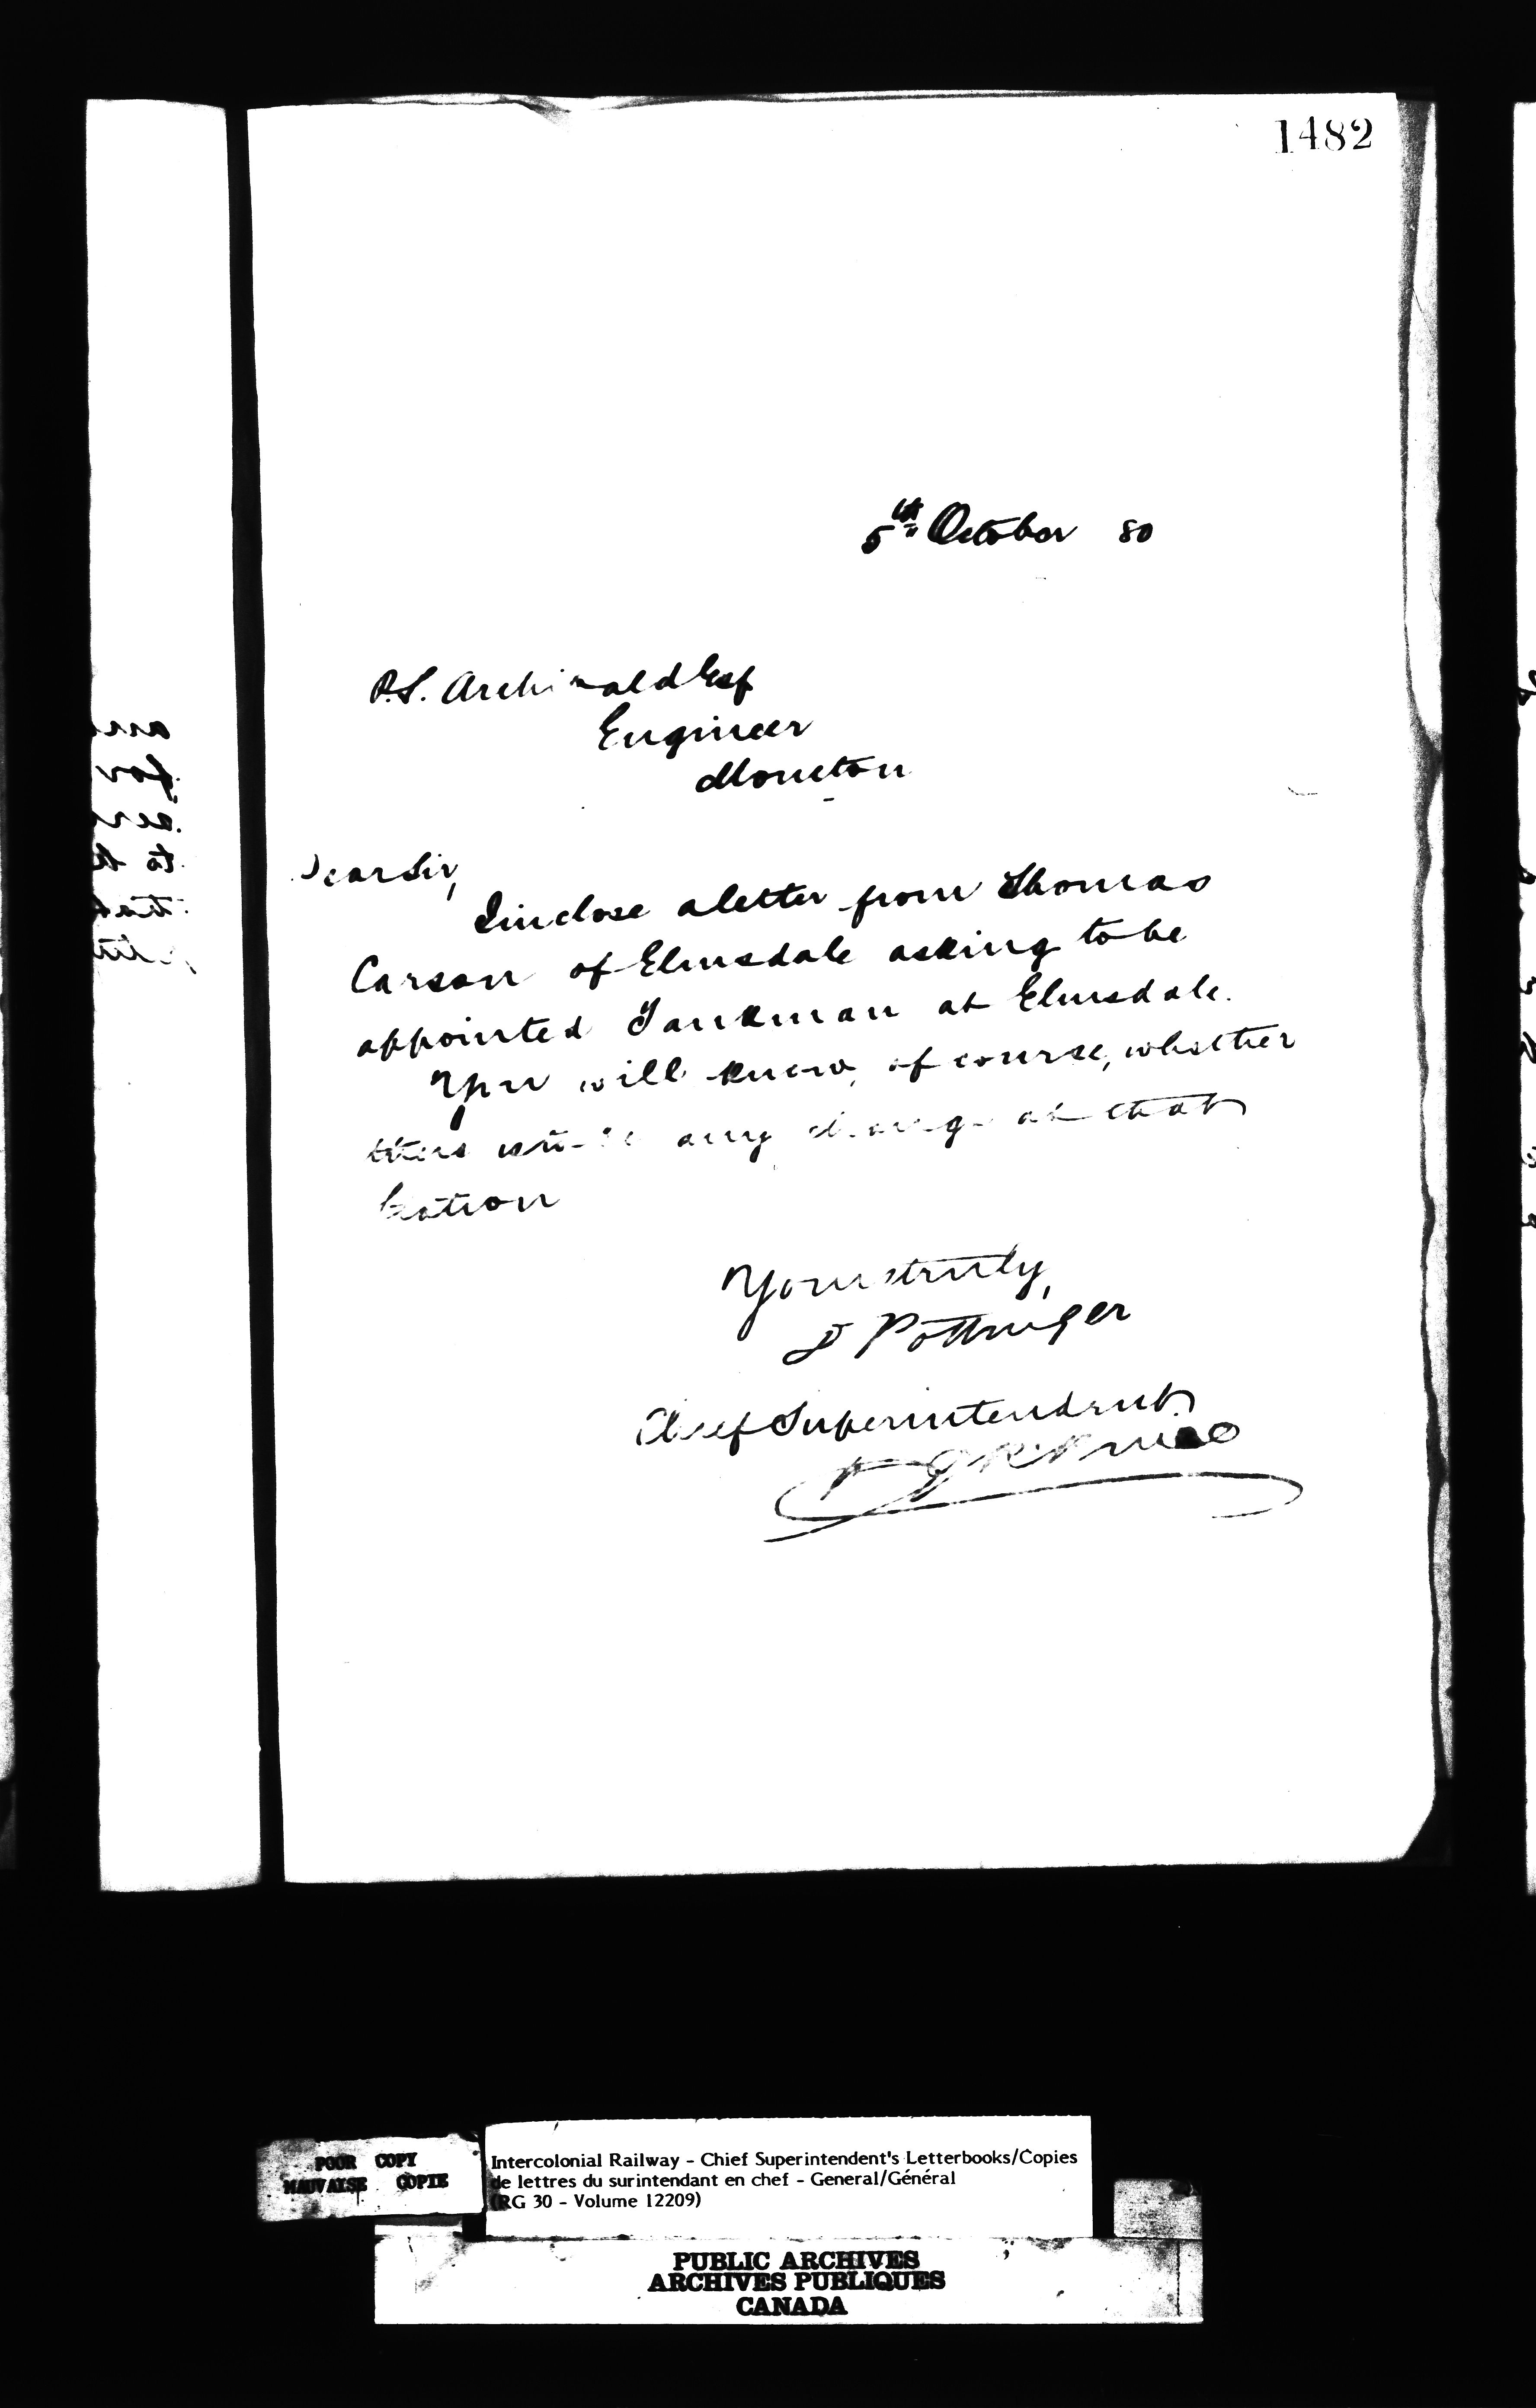 1482
5th October 80
P.S. Archibald Esq
Engineer
Moncton
Dear Sir,
I inclose a letter from Thomas
Carson of Elmsdale asking to be
appointed Tankman at Elmsdale.
You will know, of course, whether
there is to be any change at that
Station
Yours truly,
D Pottinger
Chief Superintendent
POOR COPY
MAUVAISE COPIE
Intercolonial Railway - Chief Superintendent's Letterbooks/Copies
de lettres du surintendant en chef - General/Général
(RG 30 - Volume 12209)
PUBLIC ARCHIVES
ARCHIVES PUBLIQUES
CANADA